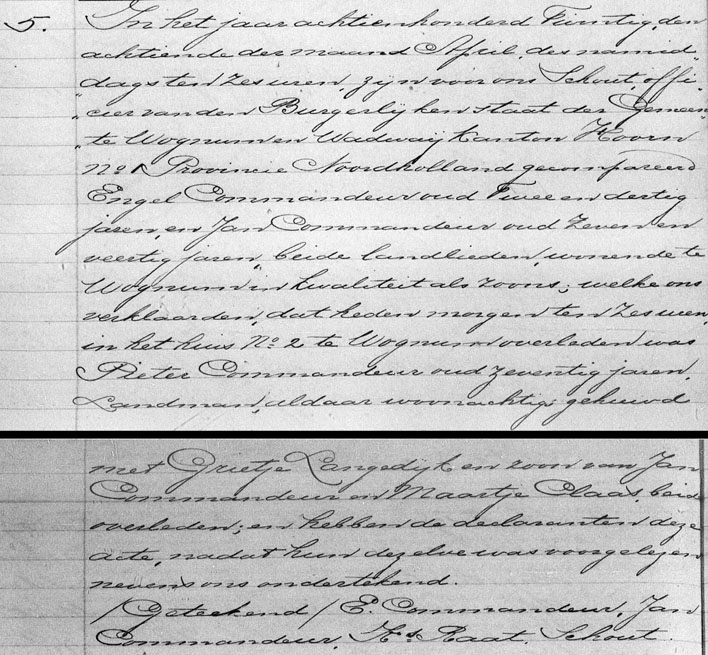 5. In het jaar achttienhonderd Vyftig, den
achtiende der maand April, des namid"
dags ten zes uren, zyn voor ons Schout, offi"
"cier van den Burgerlyken staat der Gemeen"
"te Wognum en Wadway Kanton Hoorn
No 1 Provincie Noordholland gecompareerd
Engel Commandeur oud Twee en dertig
jaren, en Jan Commandeur oud Zeven en
veertig jaren, beide landlieden, wonende te
Wognum in kwaliteit als zoons; welke ons
verklaarden, dat heden morgen ten zes uren,
in het huis No. 2 te Wognum overleden was
Pieter Commandeur oud zeventig jaren,
Landman, aldaar woonachtig; gehuwd
met Grietje Langedyk en zoon van Jan
Commandeur en Maartje Claas, beide
overleden; en hebben de declaranten deze
acte, nadat hun dezelve was voorgelezen
nevens ons ondertekend.
/Geteekend/ E. Commandeur, Jan
Commandeur, Ks. Raat, Schout.